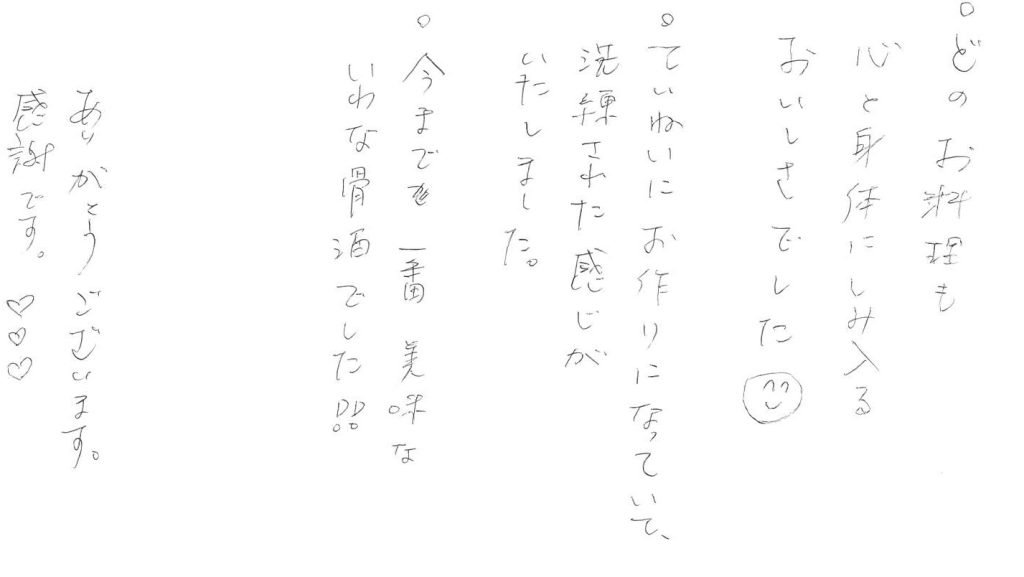 ○どのお料理も
心と身体にしみ入る
おいしさでした
○ていねいにお作りになっていて、
洗練された感じが
いたしました。
○今までで一番美味な
いわな骨酒でした
ありがとうございます。
感謝です。♡♡♡